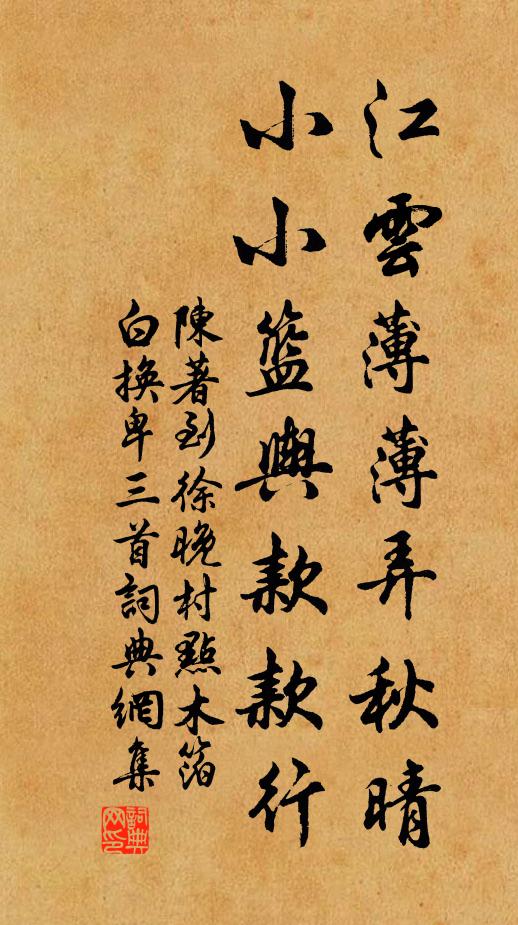 江雲薄薄弄秋晴
小小籃輿款款行
陳著到徐晚村點木箔
白換卑三首詞典網集
詞典
网印